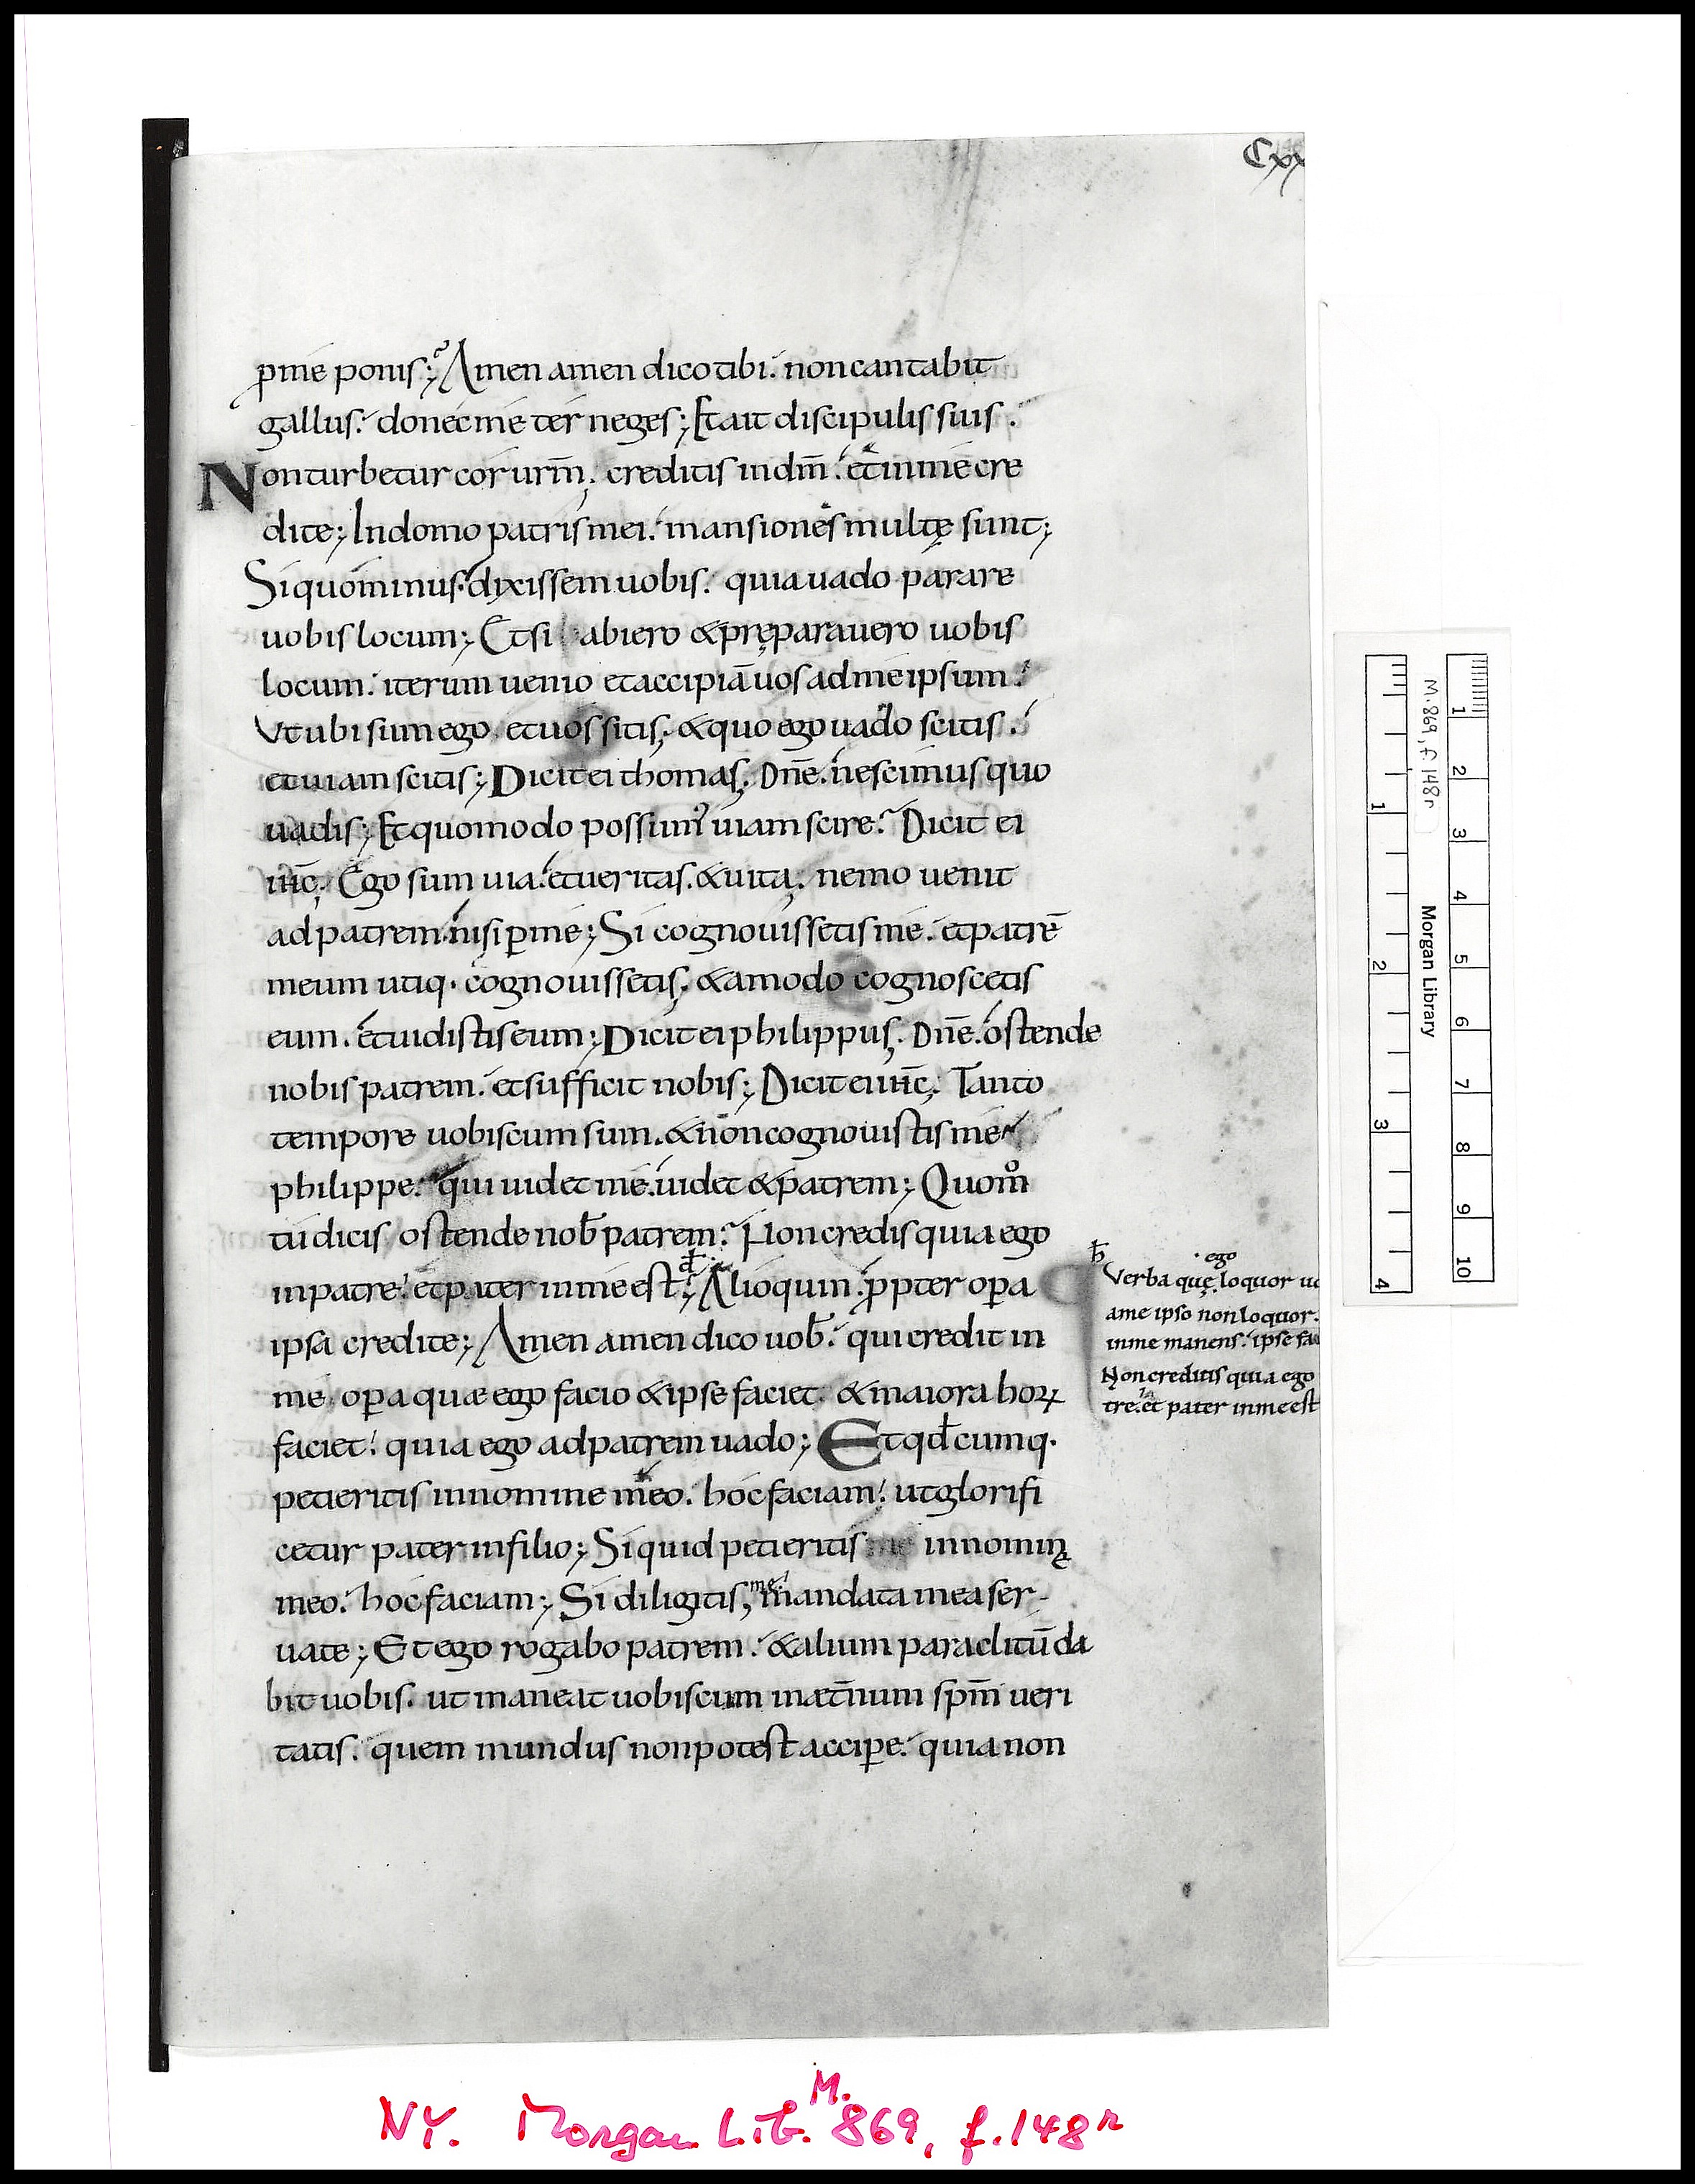 Cxx
ꝓ me ponis; Amen amen dico tibi. non cantabit
gallus. donec me ter neges; Et ait discipulis suis.
Non turbetur cor urm̄. creditis in dm̄. et in me cre
dite; In domo patris mei. mansiones multę sunt;
Si quo minus. dixissem uobis. quia uado parare
uobis locum; Et si abiero & pręparauero uobis
locum. iterum uenio et accipiā uos ad me ipsum.
Vt ubi sum ego. et uos sitis. & quo ego uado scitis.
et uiam scitis; Dicit ei thomas. Dn̄e. nescimus quo
uadis; Et quomodo possumꝰ uiam scire. Dicit ei
ih̄c. Ego sum uia. et ueritas. & uita. nemo uenit
ad patrem. nisi ꝑ me; Si cognouissetis me. et patrē
meum utiq. cognouissetis. & amodo cognoscetis
eum. et uidistis eum; Dicit ei philippus. Dn̄e. ostende
nobis patrem. et sufficit nobis; Dicit ei ih̄c. Tanto
tempore uobiscum sum. & non cognouistis me
philippe. qui uidet me. uidet & patrem; Quom̊
tu dicis ostende nob̄ patrem. Non credis quia ego
in patre. et pater in me est; đ Alioquin. ꝓpter oꝑa
ħ Verba quę loquor ego uo
a me ipso non loquor.
in me manens. ipse fac
Non creditis quia ego
tre. et pater in me est
ipsa credite; Amen amen dico uob̄. qui credit in
me. oꝑa quæ ego facio & ipse faciet. & maiora hoꝝ
faciet. quia ego ad patrem uado; Et qđcumq.
petieritis in nomine meo. hoc faciam. ut glorifi
cetur pater in filio; Si quid petieritis me in nominę
meo. hoc faciam; Si diligitis, me mandata mea ser-
uate; Et ego rogabo patrem. & alium paraclitū da
bit uobis. ut maneat uobiscum in æt̄num sp̄m ueri
tatis. quem mundus non potest acciꝑe. quia non
M.869, f 148r
Morgan Library
1 2 3 4
1 2 3 4 5 6 7 8 9 10
NY. Morgan Lib. M. 869, f. 148r